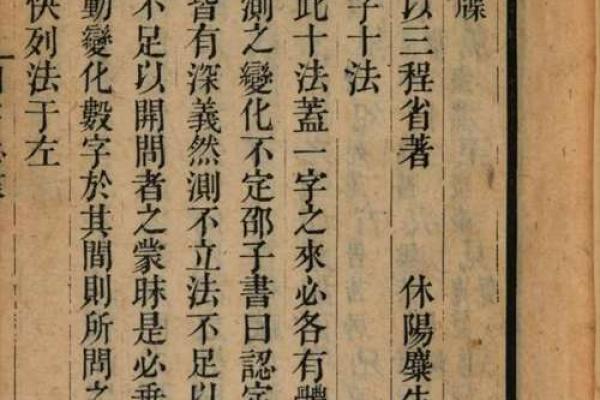 牒
以三程省著　休陽麋生
字十法
此十法蓋一字之來必各有體
測之變化不定邵子書曰認字
皆有深義然測不立法不足以
不足以開問者之蒙昧是必
動變化數字於其間則所問之
快列法于左